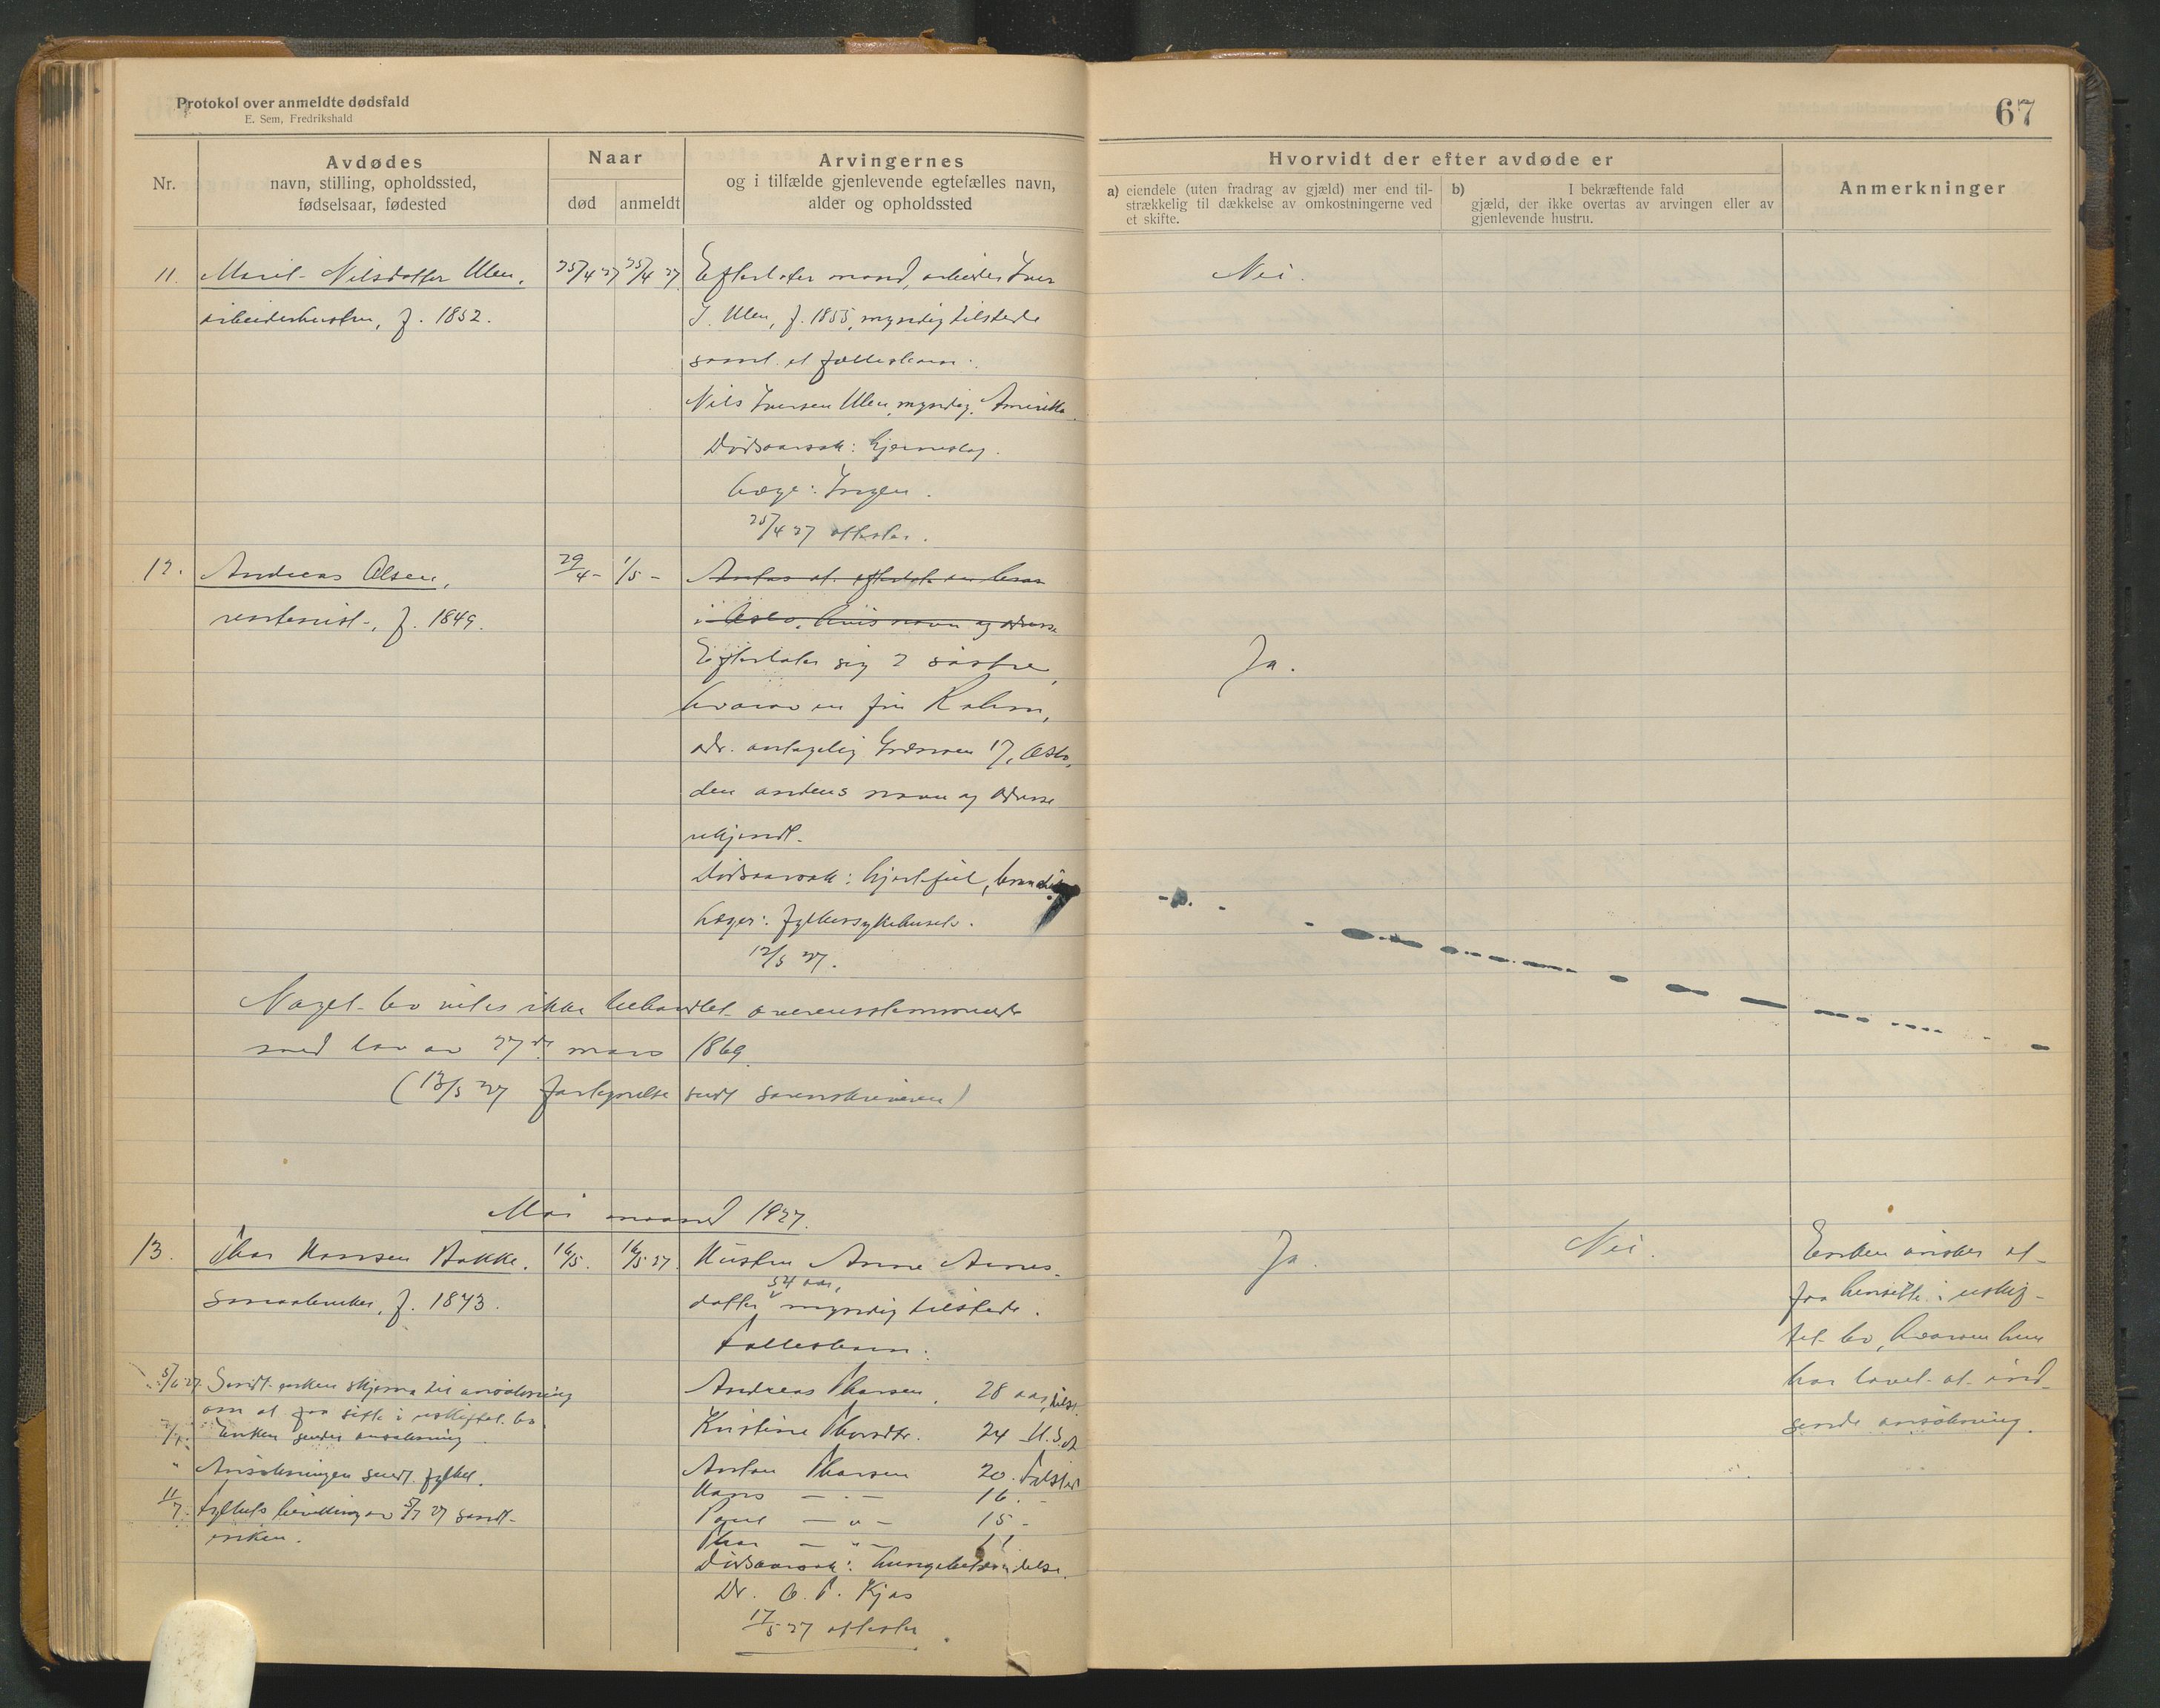 Protokol over anmeldte dødsfald
E. Sem, Fredrikshald
67
Nr.
Avdødes
navn, stilling, opholdssted,
fødselsaar, fødested
Naar
død
anmeldt
Arvingernes
og i tilfælde gjenlevende egtefælles navn,
alder og opholdssted
Hvorvidt der efter avdøde er
a) eiendele (uten fradrag av gjæld) mer end til-
strækkelig til dækkelse av omkostningerne ved
et skifte.
b) I bekræftende fald
gjæld, der ikke overtas av arvingen eller av
gjenlevende hustru.
Anmerkninger
11. Marit Nilsdatter Ulen,
arbeiderhustru, f. 1852.
25/4 27 25/4 27
Efterlater mand, arbeider Iver
J. Ulen, f. 1855, myndig tilstede
samt et fællesbarn:
Nils Iversen Ulen, myndig, Amerika
Dødsaarsak: hjerneslag.
Læge: Ingen.
25/4 27 attester.
Nei.
12. Andreas Olsen,
rentenist, f. 1849.
29/4 - 1/5 -
Antas at efterlate en bror
i Oslo, hvis navn og adresse
Efterlater sig 2 søstre,
hvorav en fru Rehm,
adr. antagelig 17, Oslo,
den andens navn og adresse
ukjendt.
Dødsaarsak: hjertefeil,
Læger: Fylkessykehusets.
12/5 27.
Ja.
Noget bo vites ikke behandlet overensstemmende
med lov av 27de mars 1869.
(13/5 27 sendt sorenskriveren)
Mai maaned 1927.
13. Thor Hansen Bakke,
smaabruker, f. 1843.
16/5. 16/5 27.
Hustru Anne Arnes-
datter, 54 aar, myndig tilstede.
Fællesbarn:
Andreas Thorsen, 28 aar, tilst.
Kristine Thorsdtr. 24 U.S.A
Anton Thorsen 20. tilsted
Hans — " — 16. -
Paul — " — 15 -
Thor — " — 11
Dødsaarsak: lungebetændelse.
Dr. O. P. Kjøs
17/5 27 attester
Ja.
Nei.
Enken ønsker at
faa hensitte i uskif-
tet bo, hvorom hun
har lovet at ind-
sende ansøkning.
5/6 27 Sendt enken skjema til ansøkning
om at faa sitte i uskiftet bo.
Enken sender ansøkning.
" Ansøkningen sendt fylket.
11/7. Fylkets bevilling av 5/7 27 sendt
enken.